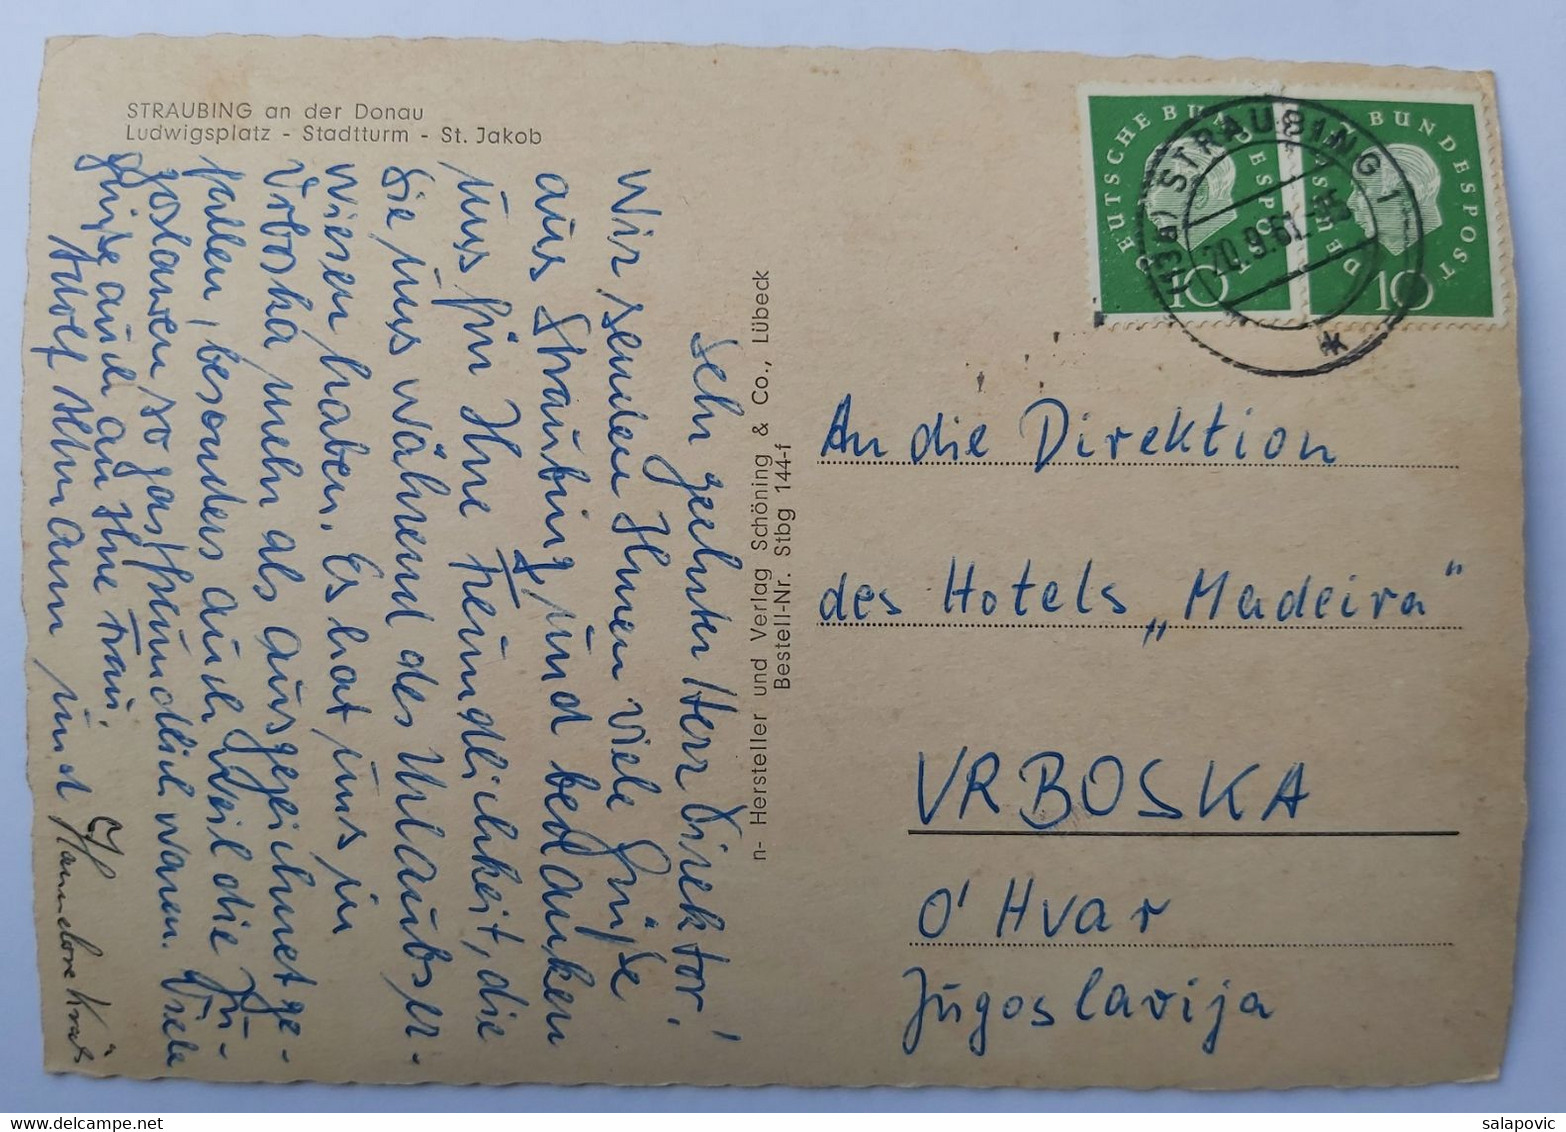 STRAUBING an der Donau
Ludwigsplatz - Stadtturm - St. Jakob
Sehr geehrter Herr Direktor!
Wir senden Ihnen viele Grüße
aus Straubing und bedanken
uns für Ihre Freundlichkeit, die
Sie uns während des Urlaubs er-
wiesen haben. Es hat uns in
Vrboska mehr als ausgezeichnet ge-
fallen, besonders auch weil die Ju-
goslawen so gastfreundlich waren. Viele
Grüße auch an Ihre Frau
Adolf und Hannelore
n- Hersteller und Verlag Schöning & Co., Lübeck
Bestell-Nr. Stbg 144-f
DEUTSCHE BUNDESPOST
10
DEUTSCHE BUNDESPOST
10
(13a) STRAUBING 1
20.9.61
An die Direktion
des Hotels „Madeira"
VRBOSKA
O' Hvar
Jugoslavija
salapovic